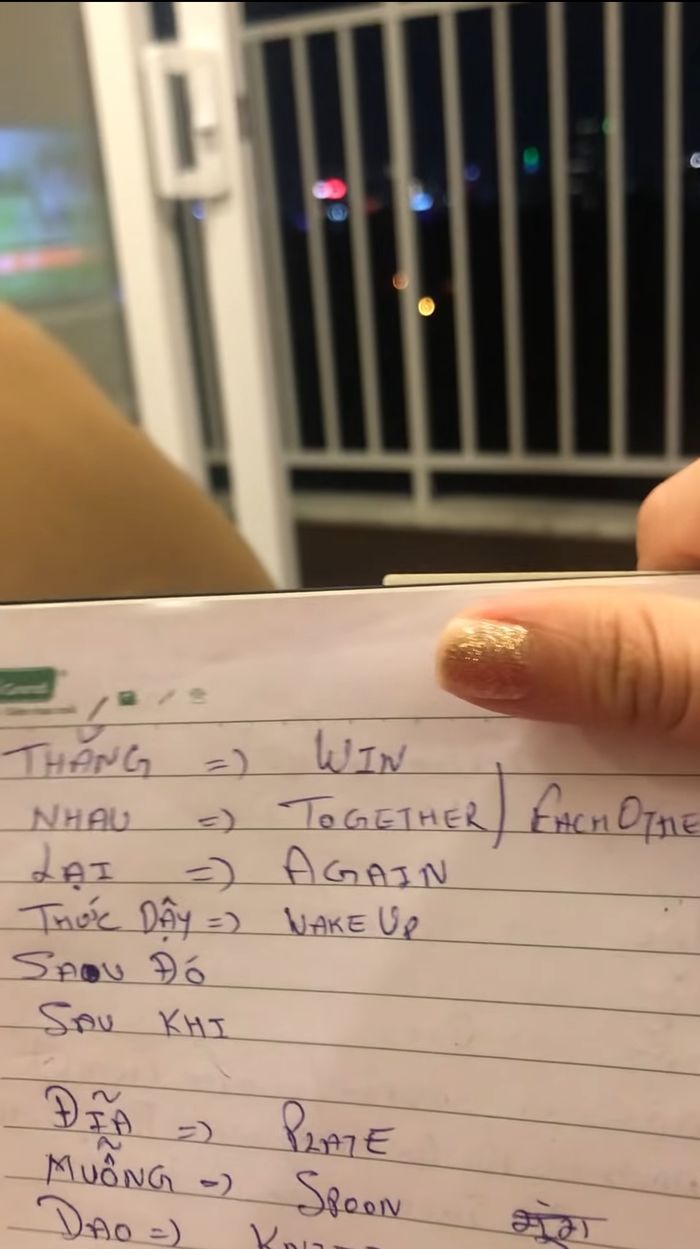 THẮNG => WIN
NHAU => TOGETHER / EACH OTHE
LẠI => AGAIN
THỨC DẬY => WAKE UP
SAU ĐÓ
SAU KHI
ĐĨA => PLATE
MUỖNG => SPOON
DAO =>